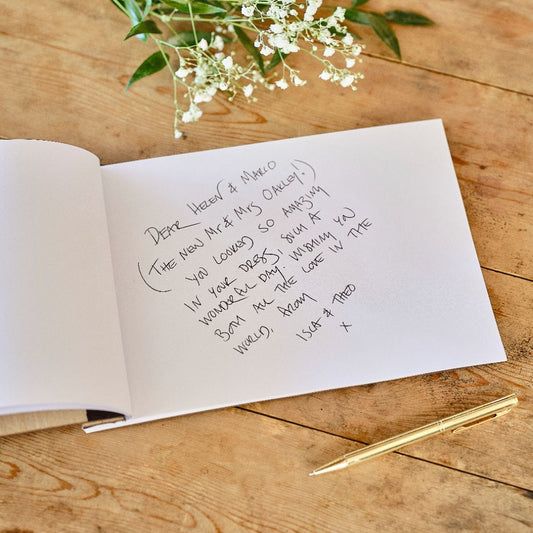 DEAR HELEN & MARCO
(THE NEW MR & MRS OAKLEY!)
YOU LOOKED SO AMAZING
IN YOUR DRESS, SUCH A
WONDERFUL DAY! WISHING YOU
BOTH ALL THE LOVE IN THE
WORLD,
ISLA & THEO
X